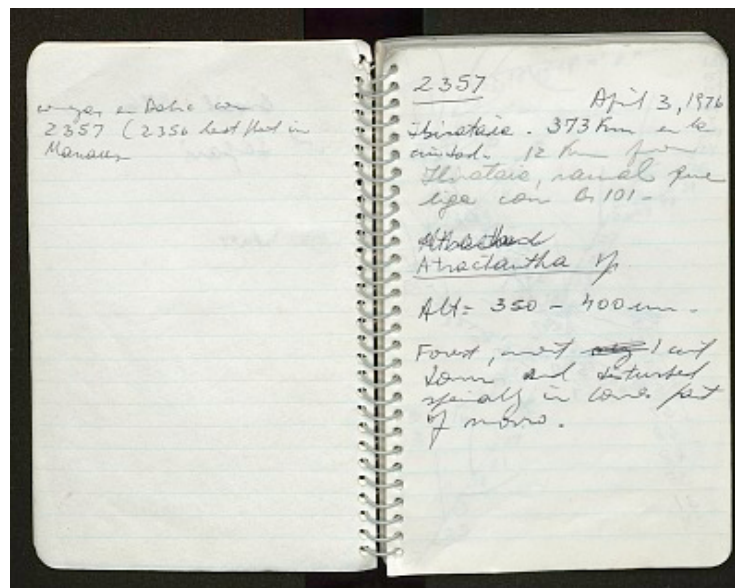 en Bahia con
2357 (2356 last plant in
Manaus
2357
April 3, 1976
Ibirataia. 373 Km en la
ciudad. 12 Km from
Ibirataia, ramal que
liga con Br 101-
Atractantha sp.
Alt= 350 - 400 m.
Forest, most cut
down and disturbed
specially in lower part
of morro.